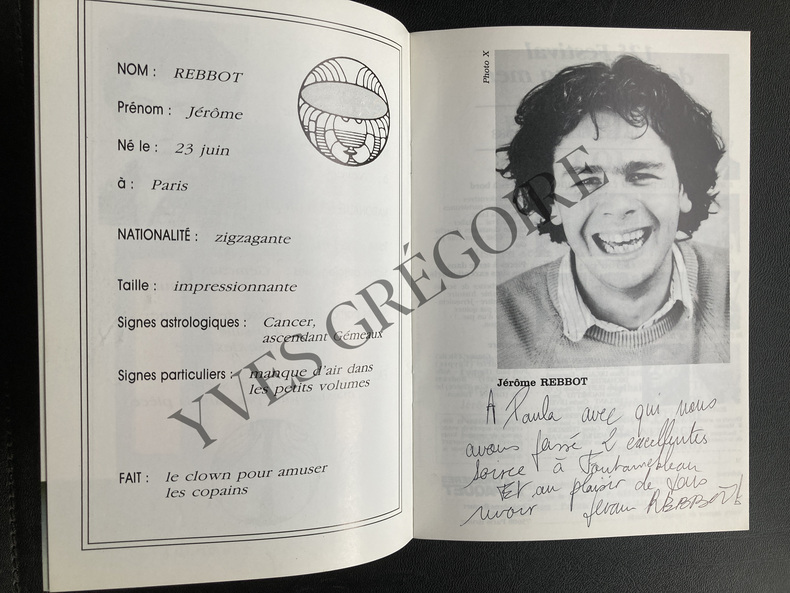 NOM : REBBOT
Prénom : Jérôme
Né le : 23 juin
à : Paris
NATIONALITÉ : zigzagante
Taille : impressionnante
Signes astrologiques : Cancer,
ascendant Gémeaux
Signes particuliers : manque d'air dans
les petits volumes
FAIT : le clown pour amuser
les copains
Photo X
Jérôme REBBOT
A Paula avec qui nous
avons passé 2 excellentes
soiree à Fontainebleau
Et au plaisir de vous
revoir REBBOT!
YVES GRÉGOIRE